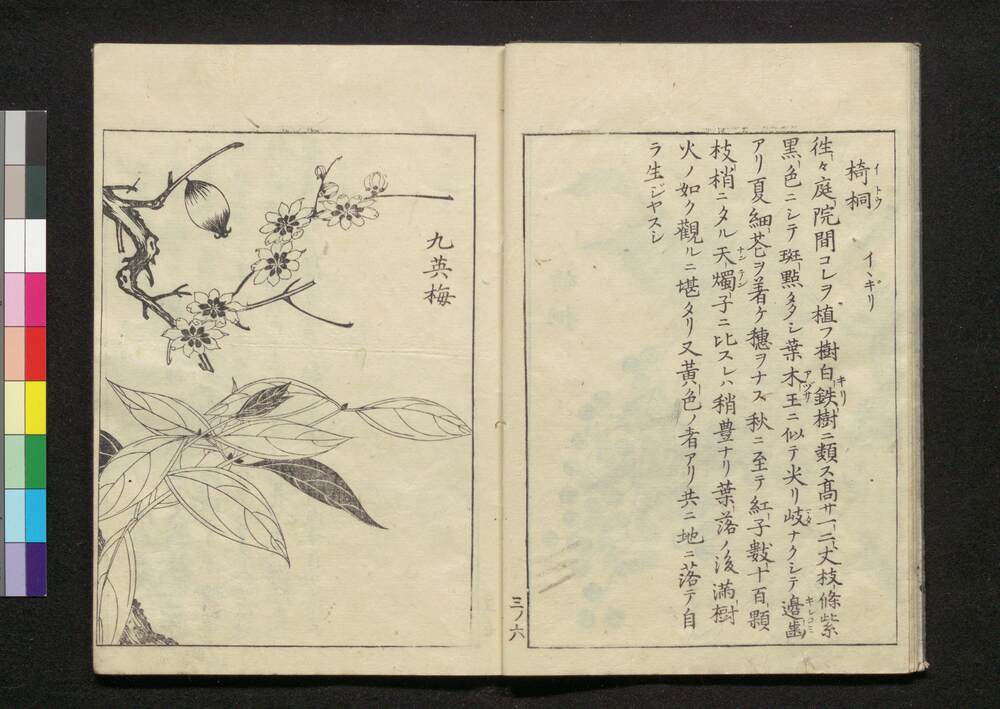 椅桐
イトウ
イヽギリ
徃々庭院間コレヲ植フ樹白鉄樹ニ類ス高サ一二丈枝條紫
キリ
黒色ニシテ斑點タタシ葉木王ニ似テ尖リ岐ナクシテ邉歯
アヅサ
マタ
キレコミ
アリ夏細花ヲ著ケ穗ヲナス秋ニ至テ紅子數十百顆
枝梢ニタル天燭子ニ比スレハ稍豊ナリ葉落ノ後滿樹
ナンテン
火ノ如ク觀ルニ堪タリ又黄色ノ者アリ共ニ地ニ落テ自
ラ生ジヤスシ
三ノ六
九英梅